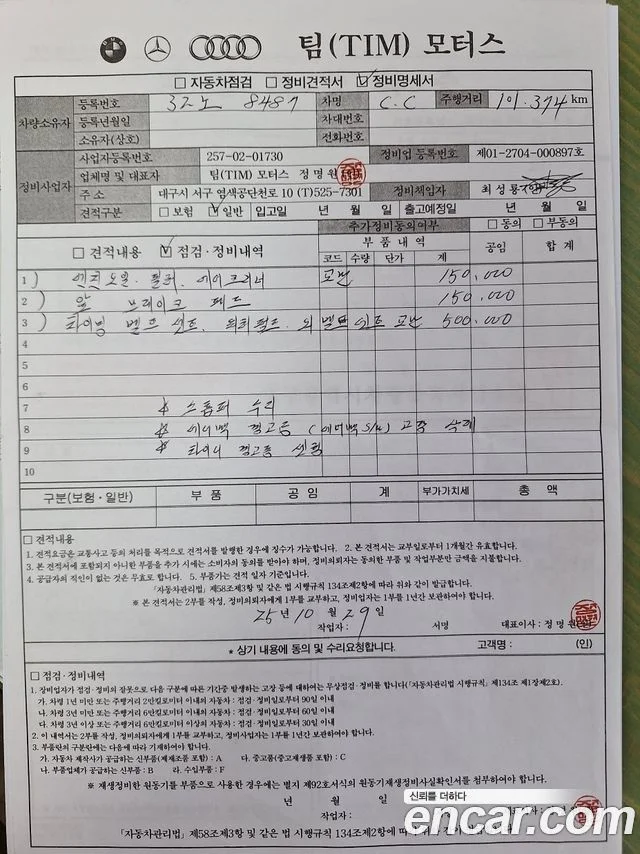 팀(TIM) 모터스
□ 자동차점검 □ 정비견적서 ☑ 정비명세서
차량소유자 등록번호 32노 8487 차명 C.C 주행거리 101.374 km
등록년월일 차대번호
소유자(상호) 전화번호
정비사업자 사업자등록번호 257-02-01730 정비업 등록번호 제01-2704-000897호
업체명 및 대표자 팀(TIM) 모터스 정 명 원
주 소 대구시 서구 염색공단천로 10 (T)525-7301 정비책임자 최 성 룡
견적구분 □ 보험 ☑ 일반 입고일 년 월 일 출고예정일 년 월 일
□ 견적내용 ☑ 점검·정비내역 추가정비동의여부 □ 동의 □ 부동의
부 품 내 역 공임 합 계
코드 수량 단가 계
1 ) 엔진오일. 필터. 에어크리너 교환 150.000
2 ) 앞 브레이크 패드 150.000
3 ) 타이밍 벨트 세트. 워터펌프. 외 벨트 세트 교환 500.000
4
5
6
7 * 스톱퍼 수리
8 * 에어백 경고등 (에어백 S/W) 고장 삭제
9 * 타이어 경고등 셋팅
10
구분(보험·일반) 부 품 공 임 계 부가가치세 총 액
□ 견적내용
1. 견적요금은 교통사고 등의 처리를 목적으로 견적서를 발행한 경우에 징수가 가능합니다. 2. 본 견적서는 교부일로부터 1개월간 유효합니다.
3. 본 견적서에 포함되지 아니한 부품을 추가 시에는 소비자의 동의를 받아야 하며, 정비의뢰자는 동의한 부품 및 작업부분만 금액을 지불합니다.
4. 공급자의 직인이 없는 것은 무효로 합니다. 5. 부품가는 견적 일자 기준입니다.
「자동차관리법」제58조제3항 및 같은 법 시행규칙 134조제2항에 따라 위와 같이 발급합니다.
※ 본 견적서는 2부를 작성, 정비의뢰자에게 1부를 교부하고, 정비업자는 1부를 1년간 보관하여야 합니다.
25 년 10 월 29 일
작업자 : 서명 대표이사 : 정 명 원
* 상기 내용에 동의 및 수리요청합니다. 고객명 : (인)
□ 점검·정비내역
1. 정비업자가 점검·정비의 잘못으로 다음 구분에 따른 기간중 발생하는 고장 등에 대하여는 무상점검·정비를 합니다(「자동차관리법 시행규칙」제134조 제1장제2호).
가. 차령 1년 미만 또는 주행거리 2만킬로미터 이내의 자동차 : 점검·정비일로부터 90일 이내
나. 차령 3년 미만 또는 주행거리 6만킬로미터 이내의 자동차 : 점검·정비일로부터 60일 이내
다. 차령 3년 이상 또는 주행거리 6만킬로미터 이상의 자동차 : 점검·정비일로부터 30일 이내
2. 이 내역서는 2부를 작성, 정비의뢰자에게 1부를 교부하고, 정비사업자는 1부를 1년간 보관하여야 합니다.
3. 부품란의 구분란에는 다음에 따라 기재하여야 합니다.
가. 자동차 제작사가 공급하는 신부품(제재조품 포함) : A 다. 중고품(중고재생품 포함) : C
나. 부품업체가 공급하는 신부품 : B 라. 수입부품 : F
※ 재생정비한 원동기를 부품으로 사용한 경우에는 별지 제92호서식의 원동기재생정비사실확인서를 첨부하여야 합니다.
년 월 일
작업자 :
「자동차관리법」제58조제3항 및 같은 법 시행규칙 134조제2항에 따
신뢰를 더하다
encar.com